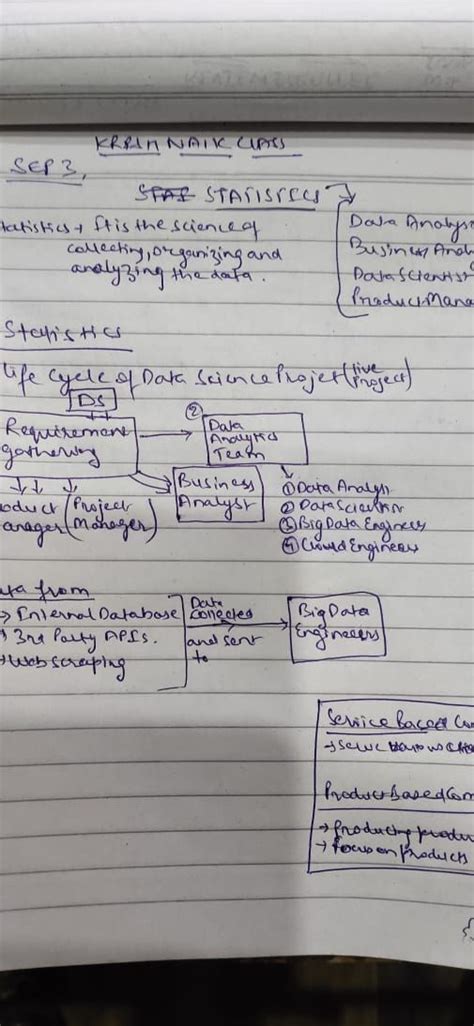 KRRIH NAIK CLASS
SEP 3,
STATISTECS
tatistics → It is the science of
collecting, organizing and
analyzing the data.
Data Analys
Business Analy
Data Scientist
Product Mana
Statistics
life Cycle of Data Science Projet (live
Project)
DS
Requirement
gathering
②
Data
Analytics
Team
Business
Analyst
oduct
anager
(Project
Manager)
① Data Analyst
② Data Scientist
③ Big Data Engineers
④ Cloud Engineers
ata from
→ Internal Database
→ 3rd Party APIs.
→ Web scraping
Data
collected
and sent
to
Big Data
Engineers
Service Based Com
Product Based Com
→ Producing produc
→ focus on products